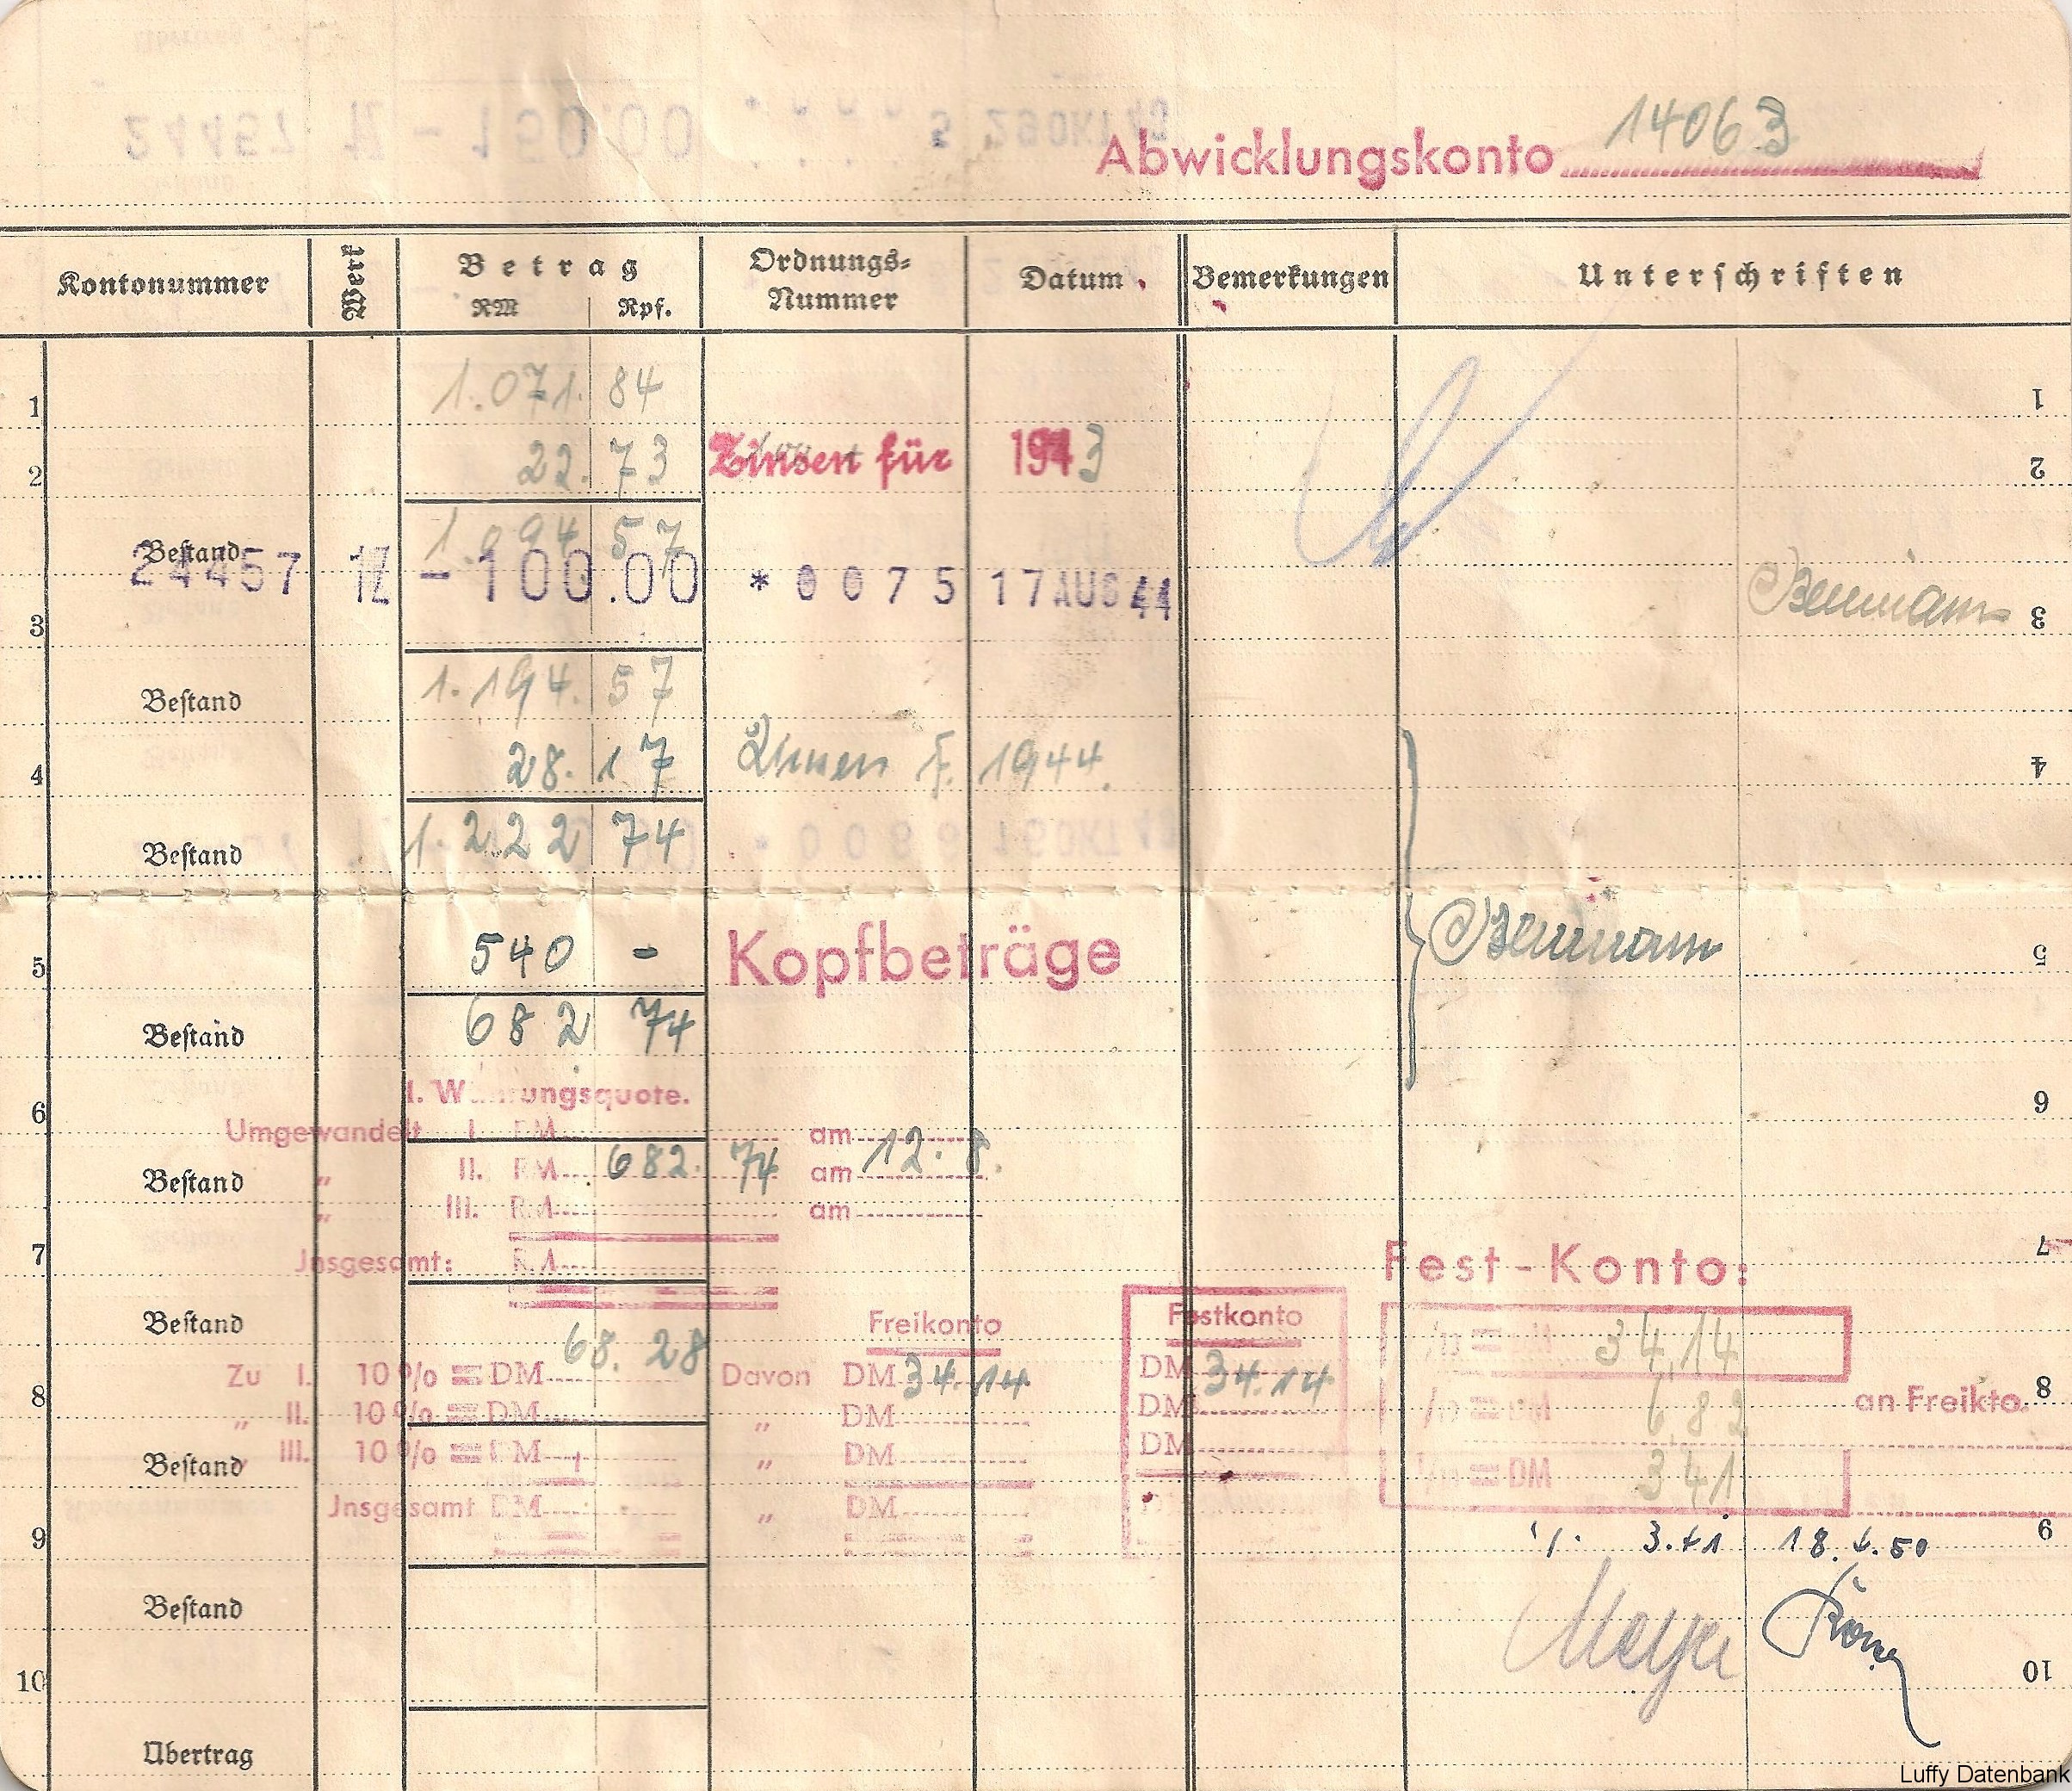 Abwicklungskonto 14063
Kontonummer Wert Betrag RM Rpf. Ordnungs-Nummer Datum Bemerkungen Unterschriften
1 1.071. 84 1
2 22. 73 Zinsen für 1943 2
Bestand 1.094 57
24457 - 100.00 * 0075 17 AUG 44
3 3
Bestand 1.194. 57
4 28. 17 Zinsen f. 1944. 4
Bestand 1.222 74
5 540 - Kopfbeträge 5
Bestand 682 74
I. Währungsquote.
6 6
Umgewandelt I. DM am
Bestand " II. RM 682. 74 am 12. 8.
" III. RM am
7 7
Jnsgesamt: RM
Fest-Konto:
Bestand Freikonto Festkonto
34,14
Zu I. 10% = DM 68. 28 Davon DM 34.14 DM 34.14
8 an Freikto. 8
" II. 10% = DM " DM DM
6,82
Bestand " III. 10% = DM " DM DM
1/10 = DM 3,41
Jnsgesamt DM " DM
9 3.41 18.4.50 9
Bestand
Meyer
10 10
Übertrag
Luffy Datenbank